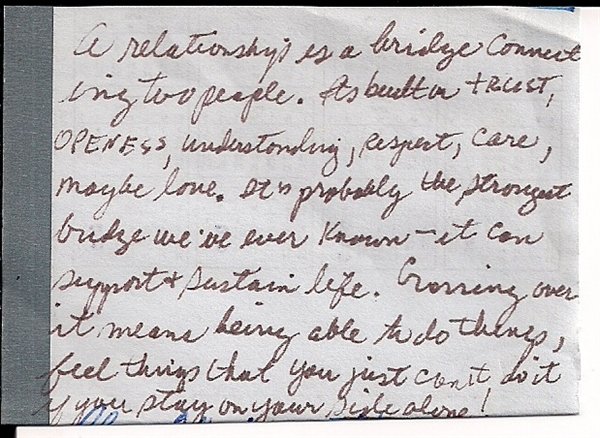 A relationship is a bridge connect
ing two people. Its built on TRUST,
OPENESS, understanding, respect, care,
maybe love. It's probably the strongest
bridge we've ever known - it can
support & sustain life. Crossing over
it means being able to do things,
feel things that you just can't do it
if you stay on your side alone!